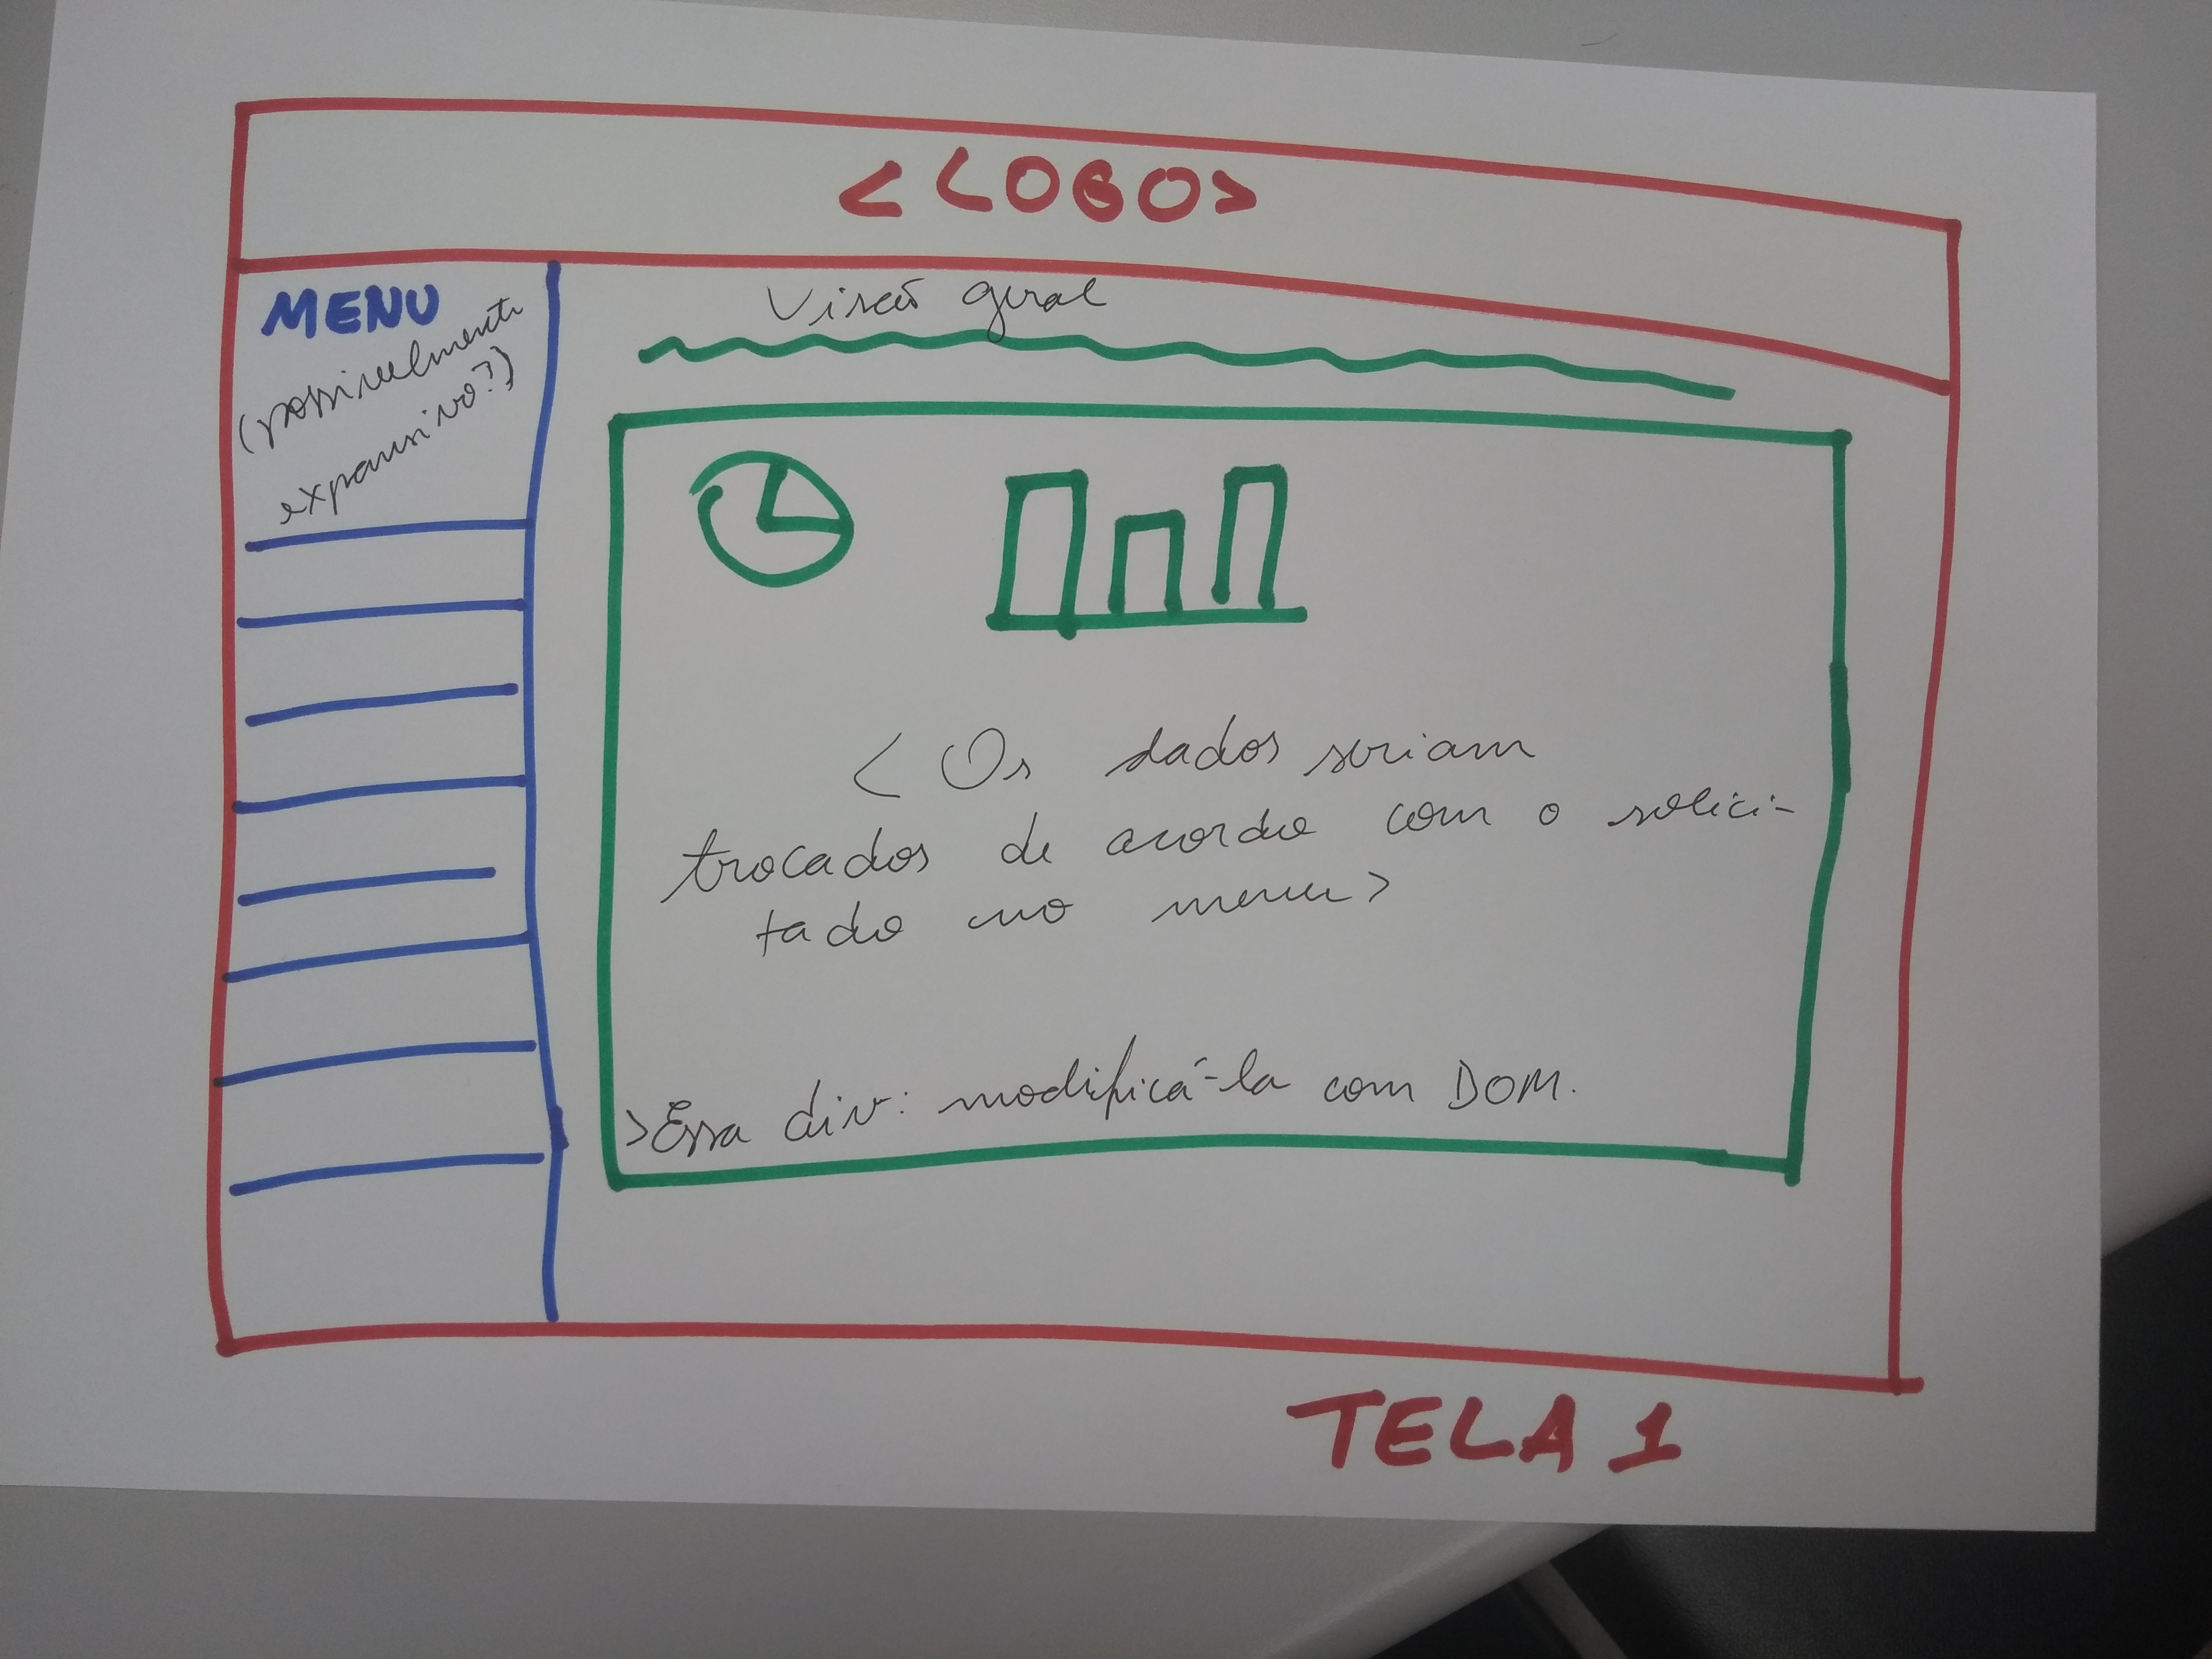 <LOGO>
MENU
(possivelmente
expansivo?)
Visão geral
< Os dados seriam
trocados de acordo com o solici-
tado no menu>
>Essa div: modificá-la com DOM.
TELA 1